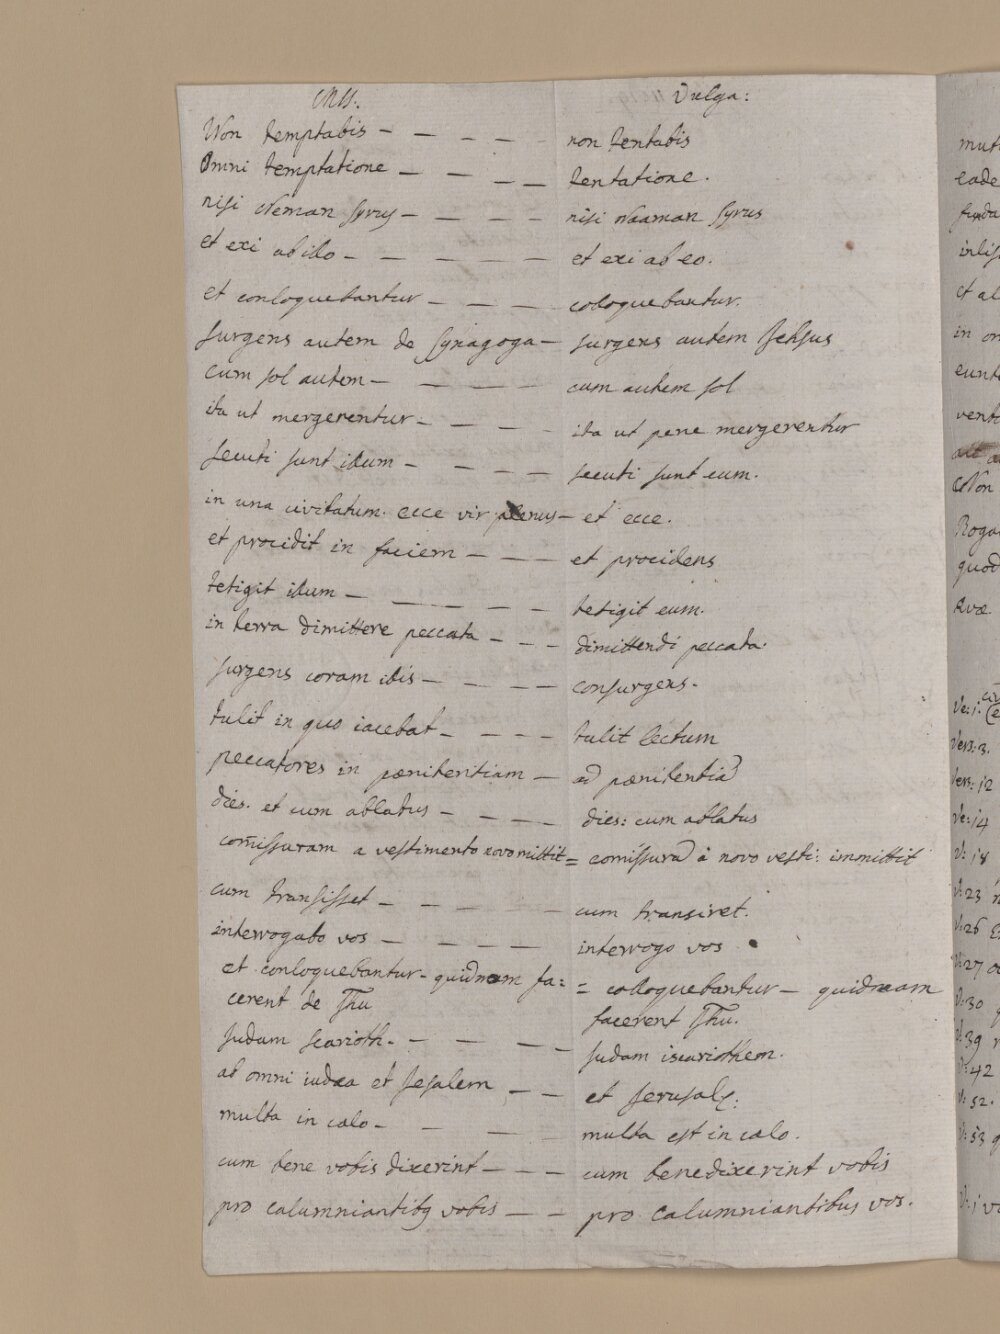 MSS. Vulga:
Non temptabis – – – – non tentabis
Omni temptatione – – – – tentatione.
nisi Neman syrus – – – – nisi Naaman syrus
et exi ab illo – – – – – et exi ab eo.
et conloquebantur – – – – colloquebantur.
surgens autem de synagoga – surgens autem Jesus
cum sol autem – – – – cum autem sol
ita ut mergerentur – – – – ita ut pene mergerentur
secuti sunt illum – – – – secuti sunt eum.
in una civitatum. ecce vir plenus – et ecce.
et procidit in faciem – – – et procidens
tetigit illum – – – – – tetigit eum.
in terra dimittere peccata – – – dimittendi peccata.
surgens coram illis – – – – consurgens.
tulit in quo iacebat – – – – tulit lectum
peccatores in pœnitentiam – ad pœnitentiā
dies. et cum ablatus – – – – dies: cum ablatus
com̄issuram a vestimento novo mittit = comissurā à novo vesti: immittit
cum transisset – – – – – cum transiret.
interrogabo vos – – – – interrogo vos
et conloquebantur – quidnam fa: = colloquebantur – quidnam
cerent de Jhu facerent Jhu.
Judam scarioth. – – – – Judam iscariothem.
ab omni iudæa et Jesalem – – et Jerusalē:
multa in cælo – – – – multa est in cælo.
cum bene vobis dixerint – – – cum benedixerint vobis
pro calumniantibq vobis – – pro calumniantibus vos.
eade
in
Non
quod
Ve: 1.
Vers: 3.
Vers: 12
Ve: 14
V: 18
V: 23
V: 26
V: 27
V: 30
V: 39
V: 42
V: 52.
V: 53
V: 1